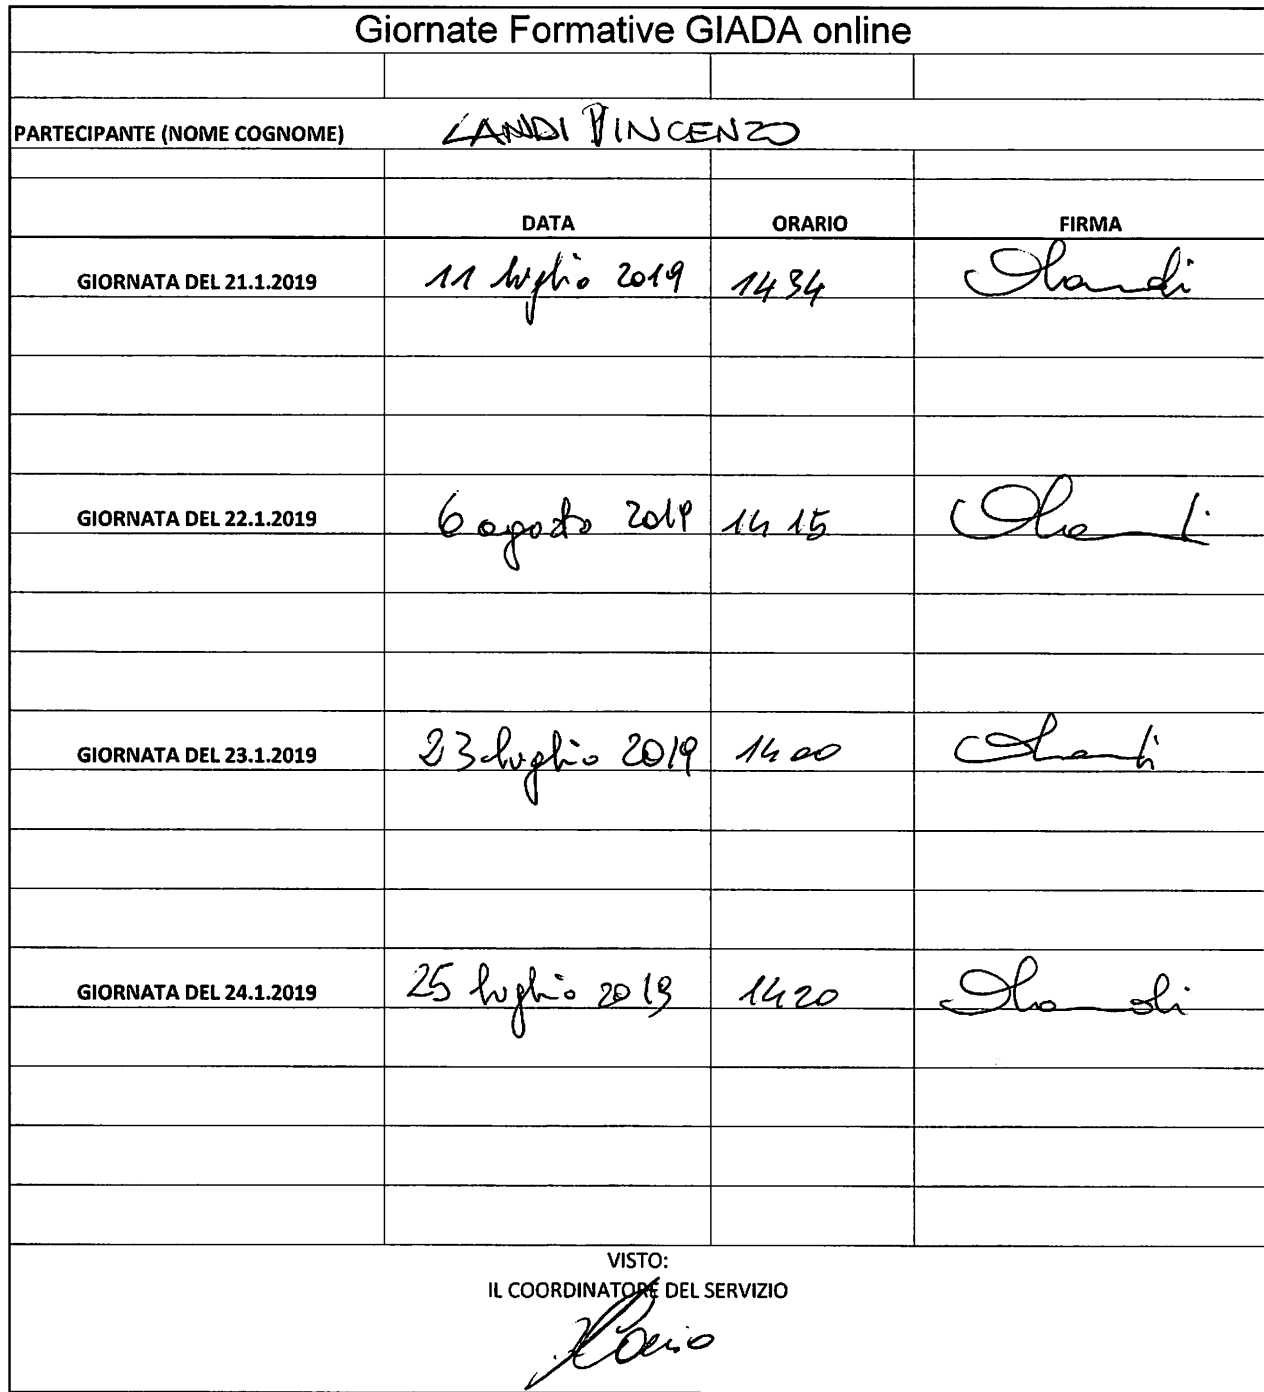 Giornate Formative GIADA online
PARTECIPANTE (NOME COGNOME) LANDI VINCENZO
DATA ORARIO FIRMA
GIORNATA DEL 21.1.2019 11 luglio 2019 14 34 Landi
GIORNATA DEL 22.1.2019 6 agosto 2019 14 15
GIORNATA DEL 23.1.2019 23 luglio 2019 14 00
GIORNATA DEL 24.1.2019 25 luglio 2019 14 20 Landi
VISTO:
IL COORDINATORE DEL SERVIZIO